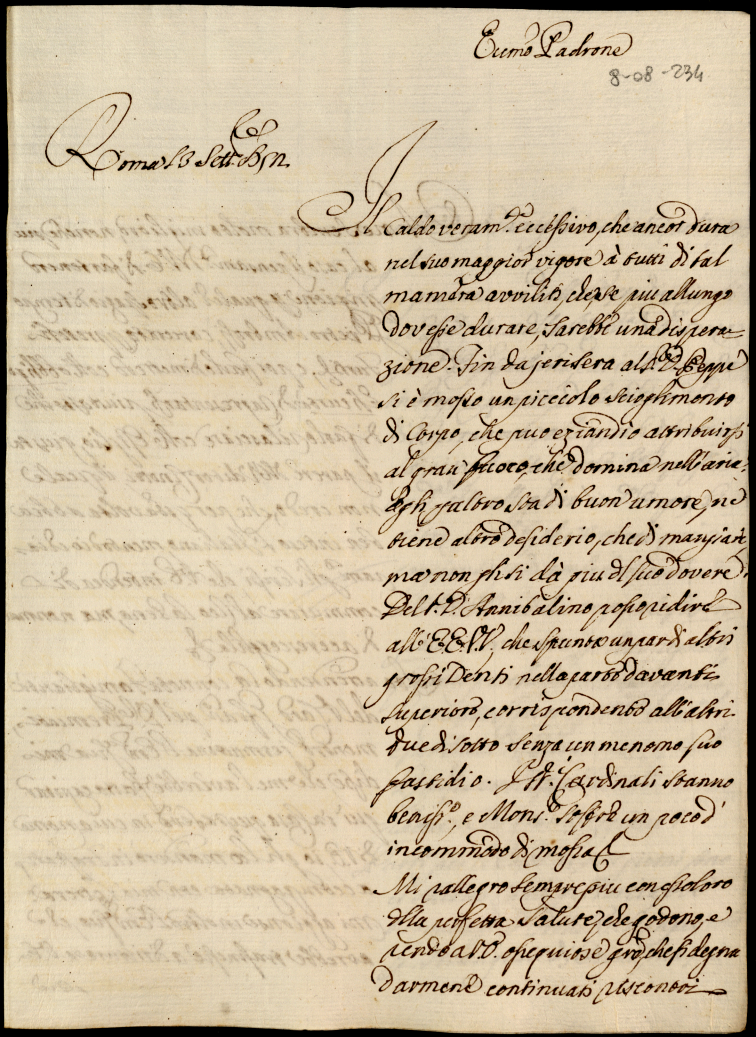 Ecc.mo Padrone
8-08-234
Roma 13 Sett.
Il
Caldo veram.te eccessivo, che ancor dura
nel suo maggior vigore à tutti di tal
maniera avviliti, che se più a lungo
dovesse durare, sarebbe una dispera-
zione. Fin da jerisera al S.r D. Peppe
si è mosso un piccolo scioglimento
di Corpo, che puo eziandio attribuirsi
al gran fuoco, che domina nell'aria.
Egli p altro sta di buon umore, ne
tiene altro desiderio, che di mangiare
ma non gli si dà piu del suo dovere.
Del S. D. Annibalino posso ridire
all' E.E. V.V. che spunta un par di altri
grossi Denti nella parte davanti
superiore, corrispondente all'altri
due di sotto senza un menomo suo
fastidio. I SS.ri Cardinali stanno
beniss.o, e Mons.r soffre un poco d'
incommodo di mossa
Mi rallegro sempre piu con essoloro
della perfetta Salute, che godono, e
rendo a V.E. ossequiose gra, che si degna
darmene continuati riscontri